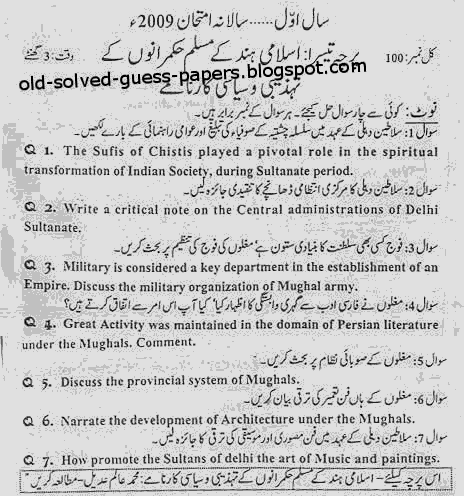 سال اوّل ...... سالانہ امتحان 2009ء
کل نمبر: 100
پرچہ تیسرا: اسلامی ہند کے مسلم حکمرانوں کے
وقت: 3 گھنٹے
old-solved-guess-papers.blogspot.com
تہذیبی و سیاسی کارنامے
نوٹ: کوئی سے چار سوال حل کیجئے۔ ہر سوال کے نمبر برابر ہیں۔
سوال 1: سلاطین دہلی کے عہد میں سلسلہ چشتیہ کے صوفیاء کی تبلیغ اور عوامی راہنمائی کے بارے لکھیں۔
Q 1. The Sufis of Chistis played a pivotal role in the spiritual
transformation of Indian Society, during Sultanate period.
سوال 2: سلاطین دہلی کا مرکزی انتظامی ڈھانچے کا تنقیدی جائزہ لیں۔
Q 2. Write a critical note on the Central administrations of Delhi
Sultanate.
سوال 3: فوج کسی بھی سلطنت کا بنیادی ستون ہے' مغلوں کی فوج کی تنظیم پر بحث کریں۔
Q 3. Military is considered a key department in the establishment of an
Empire. Discuss the military organization of Mughal army.
سوال 4: مغلوں نے فارسی ادب سے گہری وابستگی کا اظہار کیا' کیا آپ اس امر سے اتفاق کرتے ہیں؟
Q 4. Great Activity was maintained in the domain of Persian literature
under the Mughals. Comment.
سوال 5: مغلوں کے صوبائی نظام پر بحث کریں۔
Q 5. Discuss the provincial system of Mughals.
سوال 6: مغلوں کے ہاں فن تعمیر کی ترقی بیان کریں۔
Q 6. Narrate the development of Architecture under the Mughals.
سوال 7: سلاطین دہلی کے عہد میں فن مصوری اور موسیقی کی ترقی کا جائزہ لیں۔
Q 7. How promote the Sultans of delhi the art of Music and paintings.
اس پرچہ کیلئے - اسلامی ہند کے مسلم حکمرانوں کے تہذیبی و سیاسی کارنامے: محمد عالم عدیل - مطالعہ کریں"